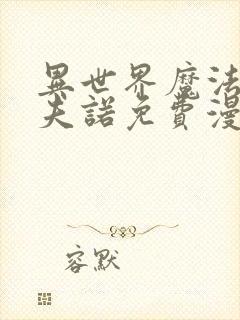 異世界魔法
夫諾免費漫
容默